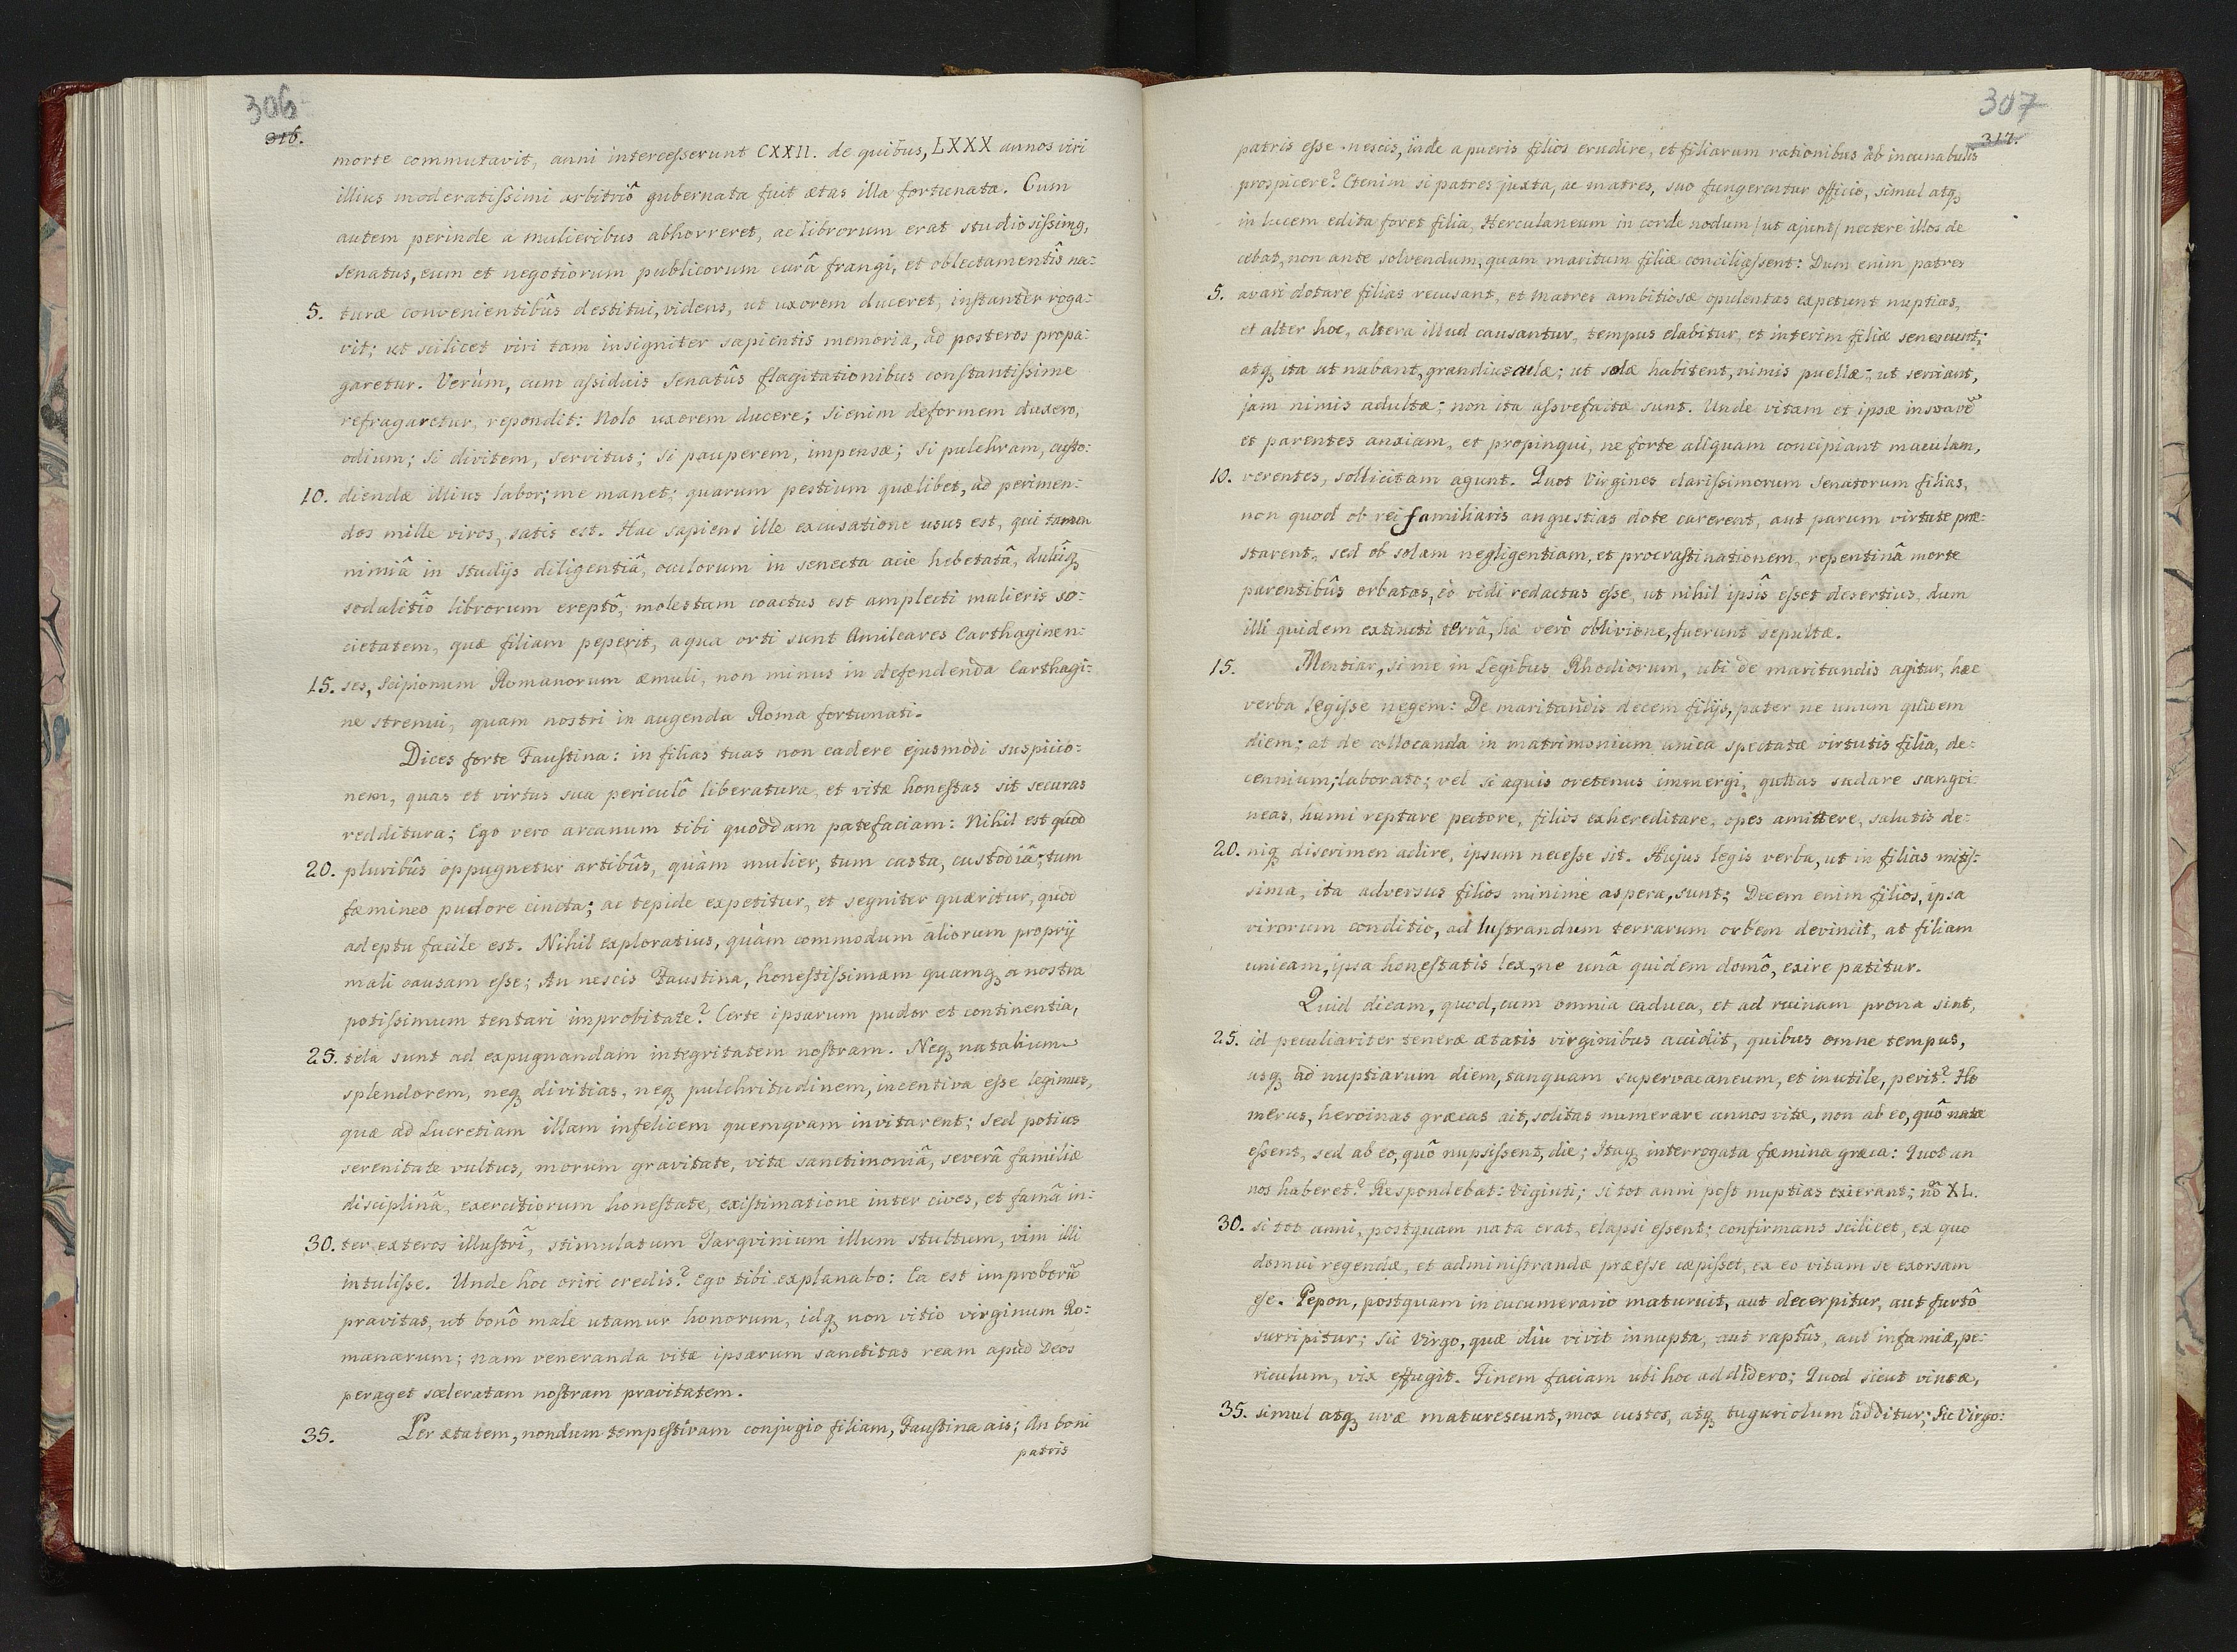 306
316.
morte commutavit, anni intercesserunt CXXII. de quibus, LXXX annos viri
illius moderatissimi arbitriô gubernata fuit ætas illa fortunata. Cum
autem perinde a mulieribus abhorreret, ac librorum erat studiosissimg,
Senatus, eum et negotiorum publicorum curâ frangi, et oblectamentîs na:
5. turæ convenientibûs destitui, videns, ut uxorem duceret, instanter roga:
vit; ut scilicet viri tam insigniter sapientis memoria, ad posteros propa:
garetur. Verùm, cum assiduis Senatûs flagitationibus constantissime
refragaretur, repondit: Nolo uxorem ducere; Si enim deformem duxero,
odium; si divitem, servitus; si pauperem, impensæ; si pulchram, custo:
10. diendæ illius labor; me manet; quarum pestium quælibet, ad perimen:
dos mille viros, satis est. Hac sapiens ille excusatione usus est, qui tamen
nimiâ in studijs diligentiâ, oculorum in senecta acie hebetatâ, dulciq
sodalitiô librorum ereptô, molestam coactus est amplecti mulieris so:
cietatem, quæ filiam peperit, a qua orti sunt Amilcares Carthaginen:
15. ses, Scipionum Romanorum æmuli, non minus in defendenda Carthagi:
ne strenui, quam nostri in augenda Roma fortunati.
Dices forte Faustina: in filias tuas non cadere ejusmodi suspicio:
nem, quas et virtus sua periculô liberatura, et vitæ honestas sit securas
redditura; Ego vero arcanum tibi quoddam patefaciam: Nihil est quod
20. pluribûs oppugnetur artibûs, quàm mulier, tum casta, custodiâ; tum
fæmineo pudore cincta; ac tepide expetitur, et segniter quæritur, quod
adeptu facile est. Nihil exploratius, quàm commodum aliorum proprij
mali causam esse; An nescis Faustina, honestissimam quamq a nostra
potissimum tentari improbitate? Certe ipsarum pudor et continentia,
25. tela sunt ad expugnandam integritatem nostram. Neq natalium
splendorem, neq divitias, neq pulchritudinem, incentiva esse legimus,
quæ ad Lucretiam illam infelicem quemquam invitarent; Sed potius
serenitate vultus, morum gravitate, vitæ sanctimoniâ, severâ familiæ
disciplinâ, exercitiorum honestate, existimatione inter cives, et famâ in:
30. ter exteros illustri, stimulatum Tarqvinium illum stultum, vim illi
intulisse. Unde hoc oriri credis? Ego tibi explanabo: Ea est improborũ
pravitas, ut bonô male utamur honorum, idq non vitio virginum Ro:
manarum; nam veneranda vitæ ipsarum sanctitas ream apud Deos
peraget sceleratam nostram pravitatem.
35. Per ætatem, nondum tempestivam conjugio filiam, Faustina ais; An boni
patris
307
317.
patris esse nescis, inde a pueris filios erudire, et filiarum rationibus ab incunabulis
prospicere? Etenim si patres juxta, ac matres, suo fungerentur officio, simul atq
in lucem edita foret filia, Herculaneum in corde nodum /ut ajunt/ nectere illos de
cebat, non ante solvendum, quam maritum filiæ conciliassent: Dum enim patres
5. avari dotare filias recusant, et matres ambitiosæ opulentas expetunt nuptias,
et alter hoc, altera illud causantur, tempus elabitur, et interim filiæ senescunt;
atq ita ut nubant, grandiusculæ; ut solæ habitent, nimis puellæ; ut serviant,
jam nimis adultæ; non ita assvefactæ sunt. Unde vitam et ipsæ insuavẽ
et parentes anxiam, et propinqui, ne forte aliquam concipiant maculam,
10. verentes, sollicitam agunt. Quot Virgines clarissimorum Senatorum filias,
non quod ob rei familiaris angustias dote carerent, aut parum virtute præ:
starent, sed ob solam negligentiam, et procrastinationem, repentinâ morte
parentibûs orbatas, eò vidi redactas esse, ut nihil ipsîs esset desertius, dum
illi quidem extincti terrâ, hæ verò oblivione, fuerunt sepultæ.
15. Mentiar, si me in Legibus Rhodiorum, ubi de maritandis agitur, hæc
verba legisse negem: De maritandis decem filijs, pater ne unum quidem
diem; at de collocanda in matrimonium unica spectatæ virtutis filia, de:
cennium; laborato; vel si aquis oretenus immergi, guttas sudare sangvi:
neas, humi reptare pectore, filios exhereditare, opes amittere, salutis de:
20. niq discrimen adire, ipsum necesse sit. Hujus legis verba, ut in filias mitis:
sima, ita adversus filios minimè aspera, sunt; Decem enim filios, ipsa
virorum conditio, ad lustrandum terrarum orbem devincit, at filiam
unicam, ipsa honestatis lex, ne unâ quidem domô, exire patitur.
Quid dicam, quod, cum omnia caduca, et ad ruinam prona sint,
25. id peculiariter teneræ ætatis virginibus accidit, quibus omne tempus,
usq ad nuptiarum diem, tanquam supervacaneum, et inutile, perit? Ho
merus, heroinas græcas ait, solitas numerare annos vitæ, non ab eo, quô natæ
essent, sed ab eo, quô nupsissent, die; Itaq interrogata fæmina græca: Quot an
nos haberet? Respondebat: Viginti; si tot anni post nuptias exierant; nõ XL.
30. si tot anni, postquam nata erat, elapsi essent; confirmans scilicet, ex quo
domui regendæ, et administrandæ præesse cæpisset, ex eo vitam se exorsam
esse. Pepon, postquam in cucumerario maturuit, aut decerpitur, aut furtô
surripitur; Sic Virgo, quæ diu vivit innupta, aut raptûs, aut infamiæ, pe:
riculum, vix effugit. Finem faciam ubi hoc addidero; Quod sicut vineæ,
35. simul atq uvæ maturescunt, mox custos, atq tuguriolum additur; Sic Virgo: